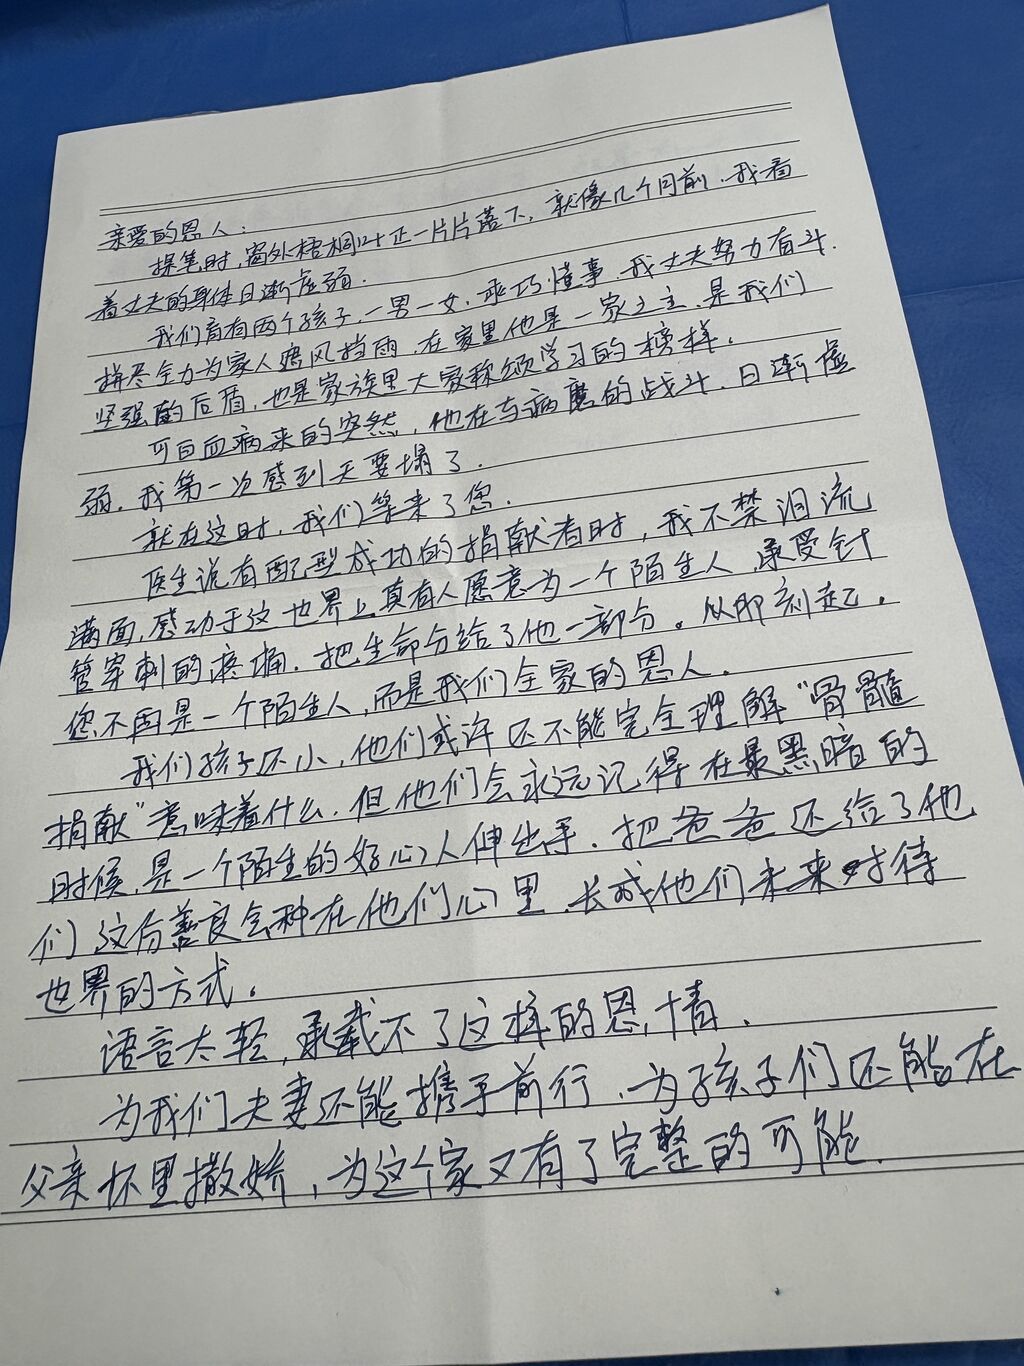 亲爱的恩人：
提笔时，窗外梧桐叶正一片片落下，就像几个月前，我看
着丈夫的身体日渐虚弱.
我们育有两个孩子，一男一女，乖巧懂事，我丈夫努力奋斗.
拼尽全力为家人遮风挡雨，在家里他是一家之主，是我们
坚强的后盾，也是家族里大家称颂学习的榜样.
可白血病来的突然，他在与病魔的战斗，日渐虚
弱，我第一次感到天要塌了.
就在这时，我们等来了您.
医生说有配型成功的捐献者时，我不禁泪流
满面，感动于这世界上真有人愿意为一个陌生人，承受针
管穿刺的疼痛，把生命分给了他一部分。从即刻起，
您不再是一个陌生人，而是我们全家的恩人.
我们孩子还小，他们或许还不能完全理解“骨髓
捐献”意味着什么，但他们会永远记得在最黑暗的
时候，是一个陌生的好心人伸出手，把爸爸还给了他
们，这份善良会种在他们心里，长成他们未来对待
世界的方式。
语言太轻，承载不了这样的恩情.
为我们夫妻还能携手前行，为孩子们还能在
父亲怀里撒娇，为这个家又有了完整的可能.